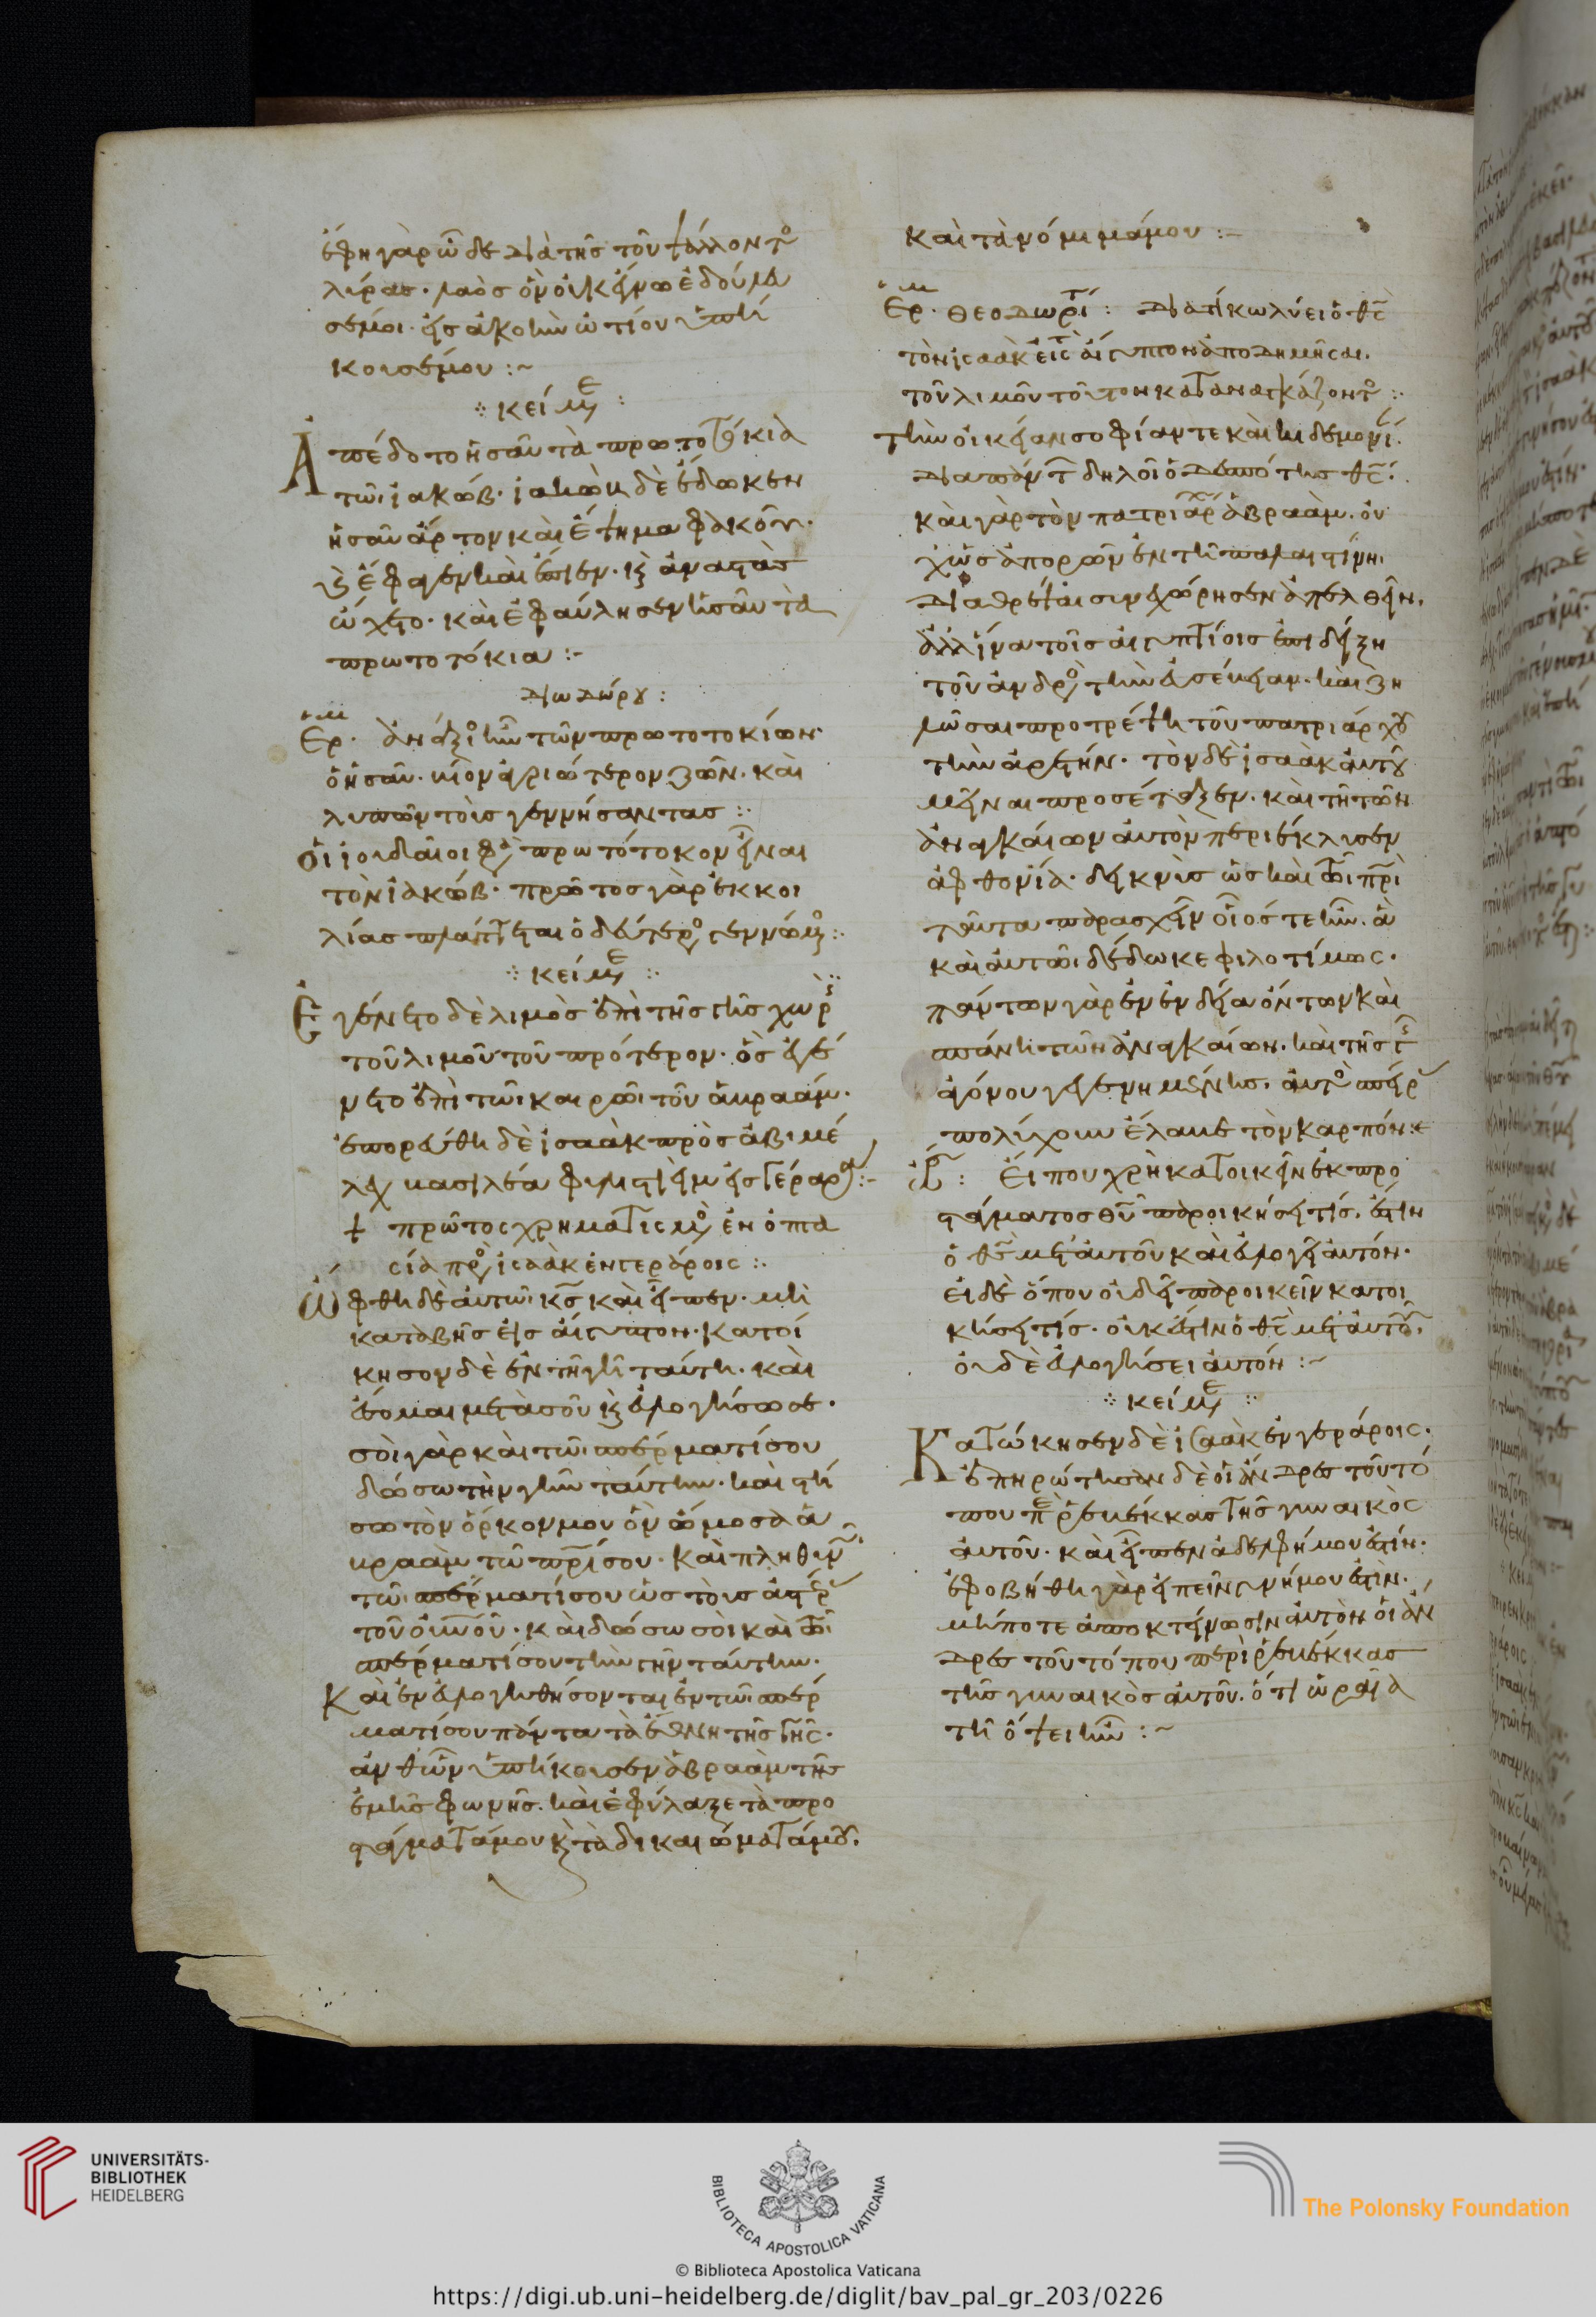 ἔφη γὰρ ὧδε διὰ τῆς τοῦ ψάλλοντο
λύρας· λαὸς ὃν οὐκ ἔγνω ἐδούλευ
σέ μοι· εἰς ἀκοὴν ὠτίου ὑπή
κουσέ μου :~
κείμε :
Ἀπέδοτο ἡσαῦ τὰ πρωτοτόκια
τῶι ἰακώβ· ἰακὼβ δὲ ἔδωκεν
ἡσαῦ ἄρτον καὶ ἕψημα φακοῦ·
καὶ ἔφαγεν καὶ ἔπιεν· καὶ ἀναστὰς
ὤχετο· καὶ ἐφαύλησεν ἡσαῦ τὰ
πρωτοτόκια :-
Διωδώρου :
Ἑρμ. ἀνάξιος ἦν τῶν πρωτοτοκίων·
ὁ ἡσαῦ· βίον ἀγριώτερον ζῶν· καὶ
λυπῶν τοὺς γεννήσαντας :
Οἱ ἰουδαῖοι φασὶ πρωτότοκον εἶναι
τὸν ἰακώβ· πρῶτος γὰρ ἐκ κοι
λίας πλάττεται ὁ δεύτερος γεννώμενος :
κείμε :
Ἐγένετο δὲ λιμὸς ἐπὶ τῆς γῆς χωρὶς
τοῦ λιμοῦ τοῦ πρότερον· ὃς ἐγέ
νετο ἐπὶ τῶι καιρῶι τοῦ ἁβραάμ·
ἐπορεύθη δὲ ἰσαὰκ πρὸς ἀβιμέ
λεχ βασιλέα φυλιστιεὶμ εἰς γέραρα :-
+ πρῶτος χρηματισμὸς ἐν ὀπτα
σία πρὸς ἰσαὰκ ἐν γεράροις :
Ὤφθη δὲ αὐτῶι κς καὶ εἶπεν· μὴ
καταβῆς εἰς αἴγυπτον· κατοί
κησον δὲ ἐν τῆ γῆ ταύτη· καὶ
ἔσομαι μετὰ σοῦ καὶ εὐλογήσω σε·
σοὶ γὰρ καὶ τῶι σπέρματί σου
δώσω τὴν γῆν ταύτην· καὶ στή
σω τὸν ὅρκον μου ὃν ὤμοσα ἁ
βραὰμ τῶ πρί σου· καὶ πληθυνῶ
τῶι σπέρματί σου ὡς τοὺς ἀστέρας
τοῦ οὐνοῦ· καὶ δώσω σοὶ καὶ τῶι
σπέρματί σου τὴν γῆν ταύτην·
Καὶ ἐνευλογηθήσονται ἐν τῶι σπέρ
ματί σου πάντα τὰ ἔθνη τῆς γῆς·
ἀνθ' ὧν ὑπήκουσεν ἀβραὰμ τῆς
ἐμῆς φωνῆς· καὶ ἐφύλαξε τὰ προ
στάγματά μου καὶ τὰ δικαιώματά μου·
καὶ τὰ νόμιμά μου :-
Ἑρμ. Θεοδωρίτ : Διατί κωλύει ὁ θς
τὸν ἰσαὰκ εἰς αἴγυπτον ἀποδημῆσαι·
τοῦ λιμοῦ τοῦτον καταναγκάζοντος :
τὴν οἰκείαν σοφίαν τε καὶ κηδεμονί·
διὰ πάντων δηλοῖ ὁ δεσπότης θς·
καὶ γὰρ τὸν πατριάρχην ἀβραάμ· οὐ
χ ὡς ἀπορῶν ἐν τῆ παλαιστίνη·
διαθρέψαι συνεχώρησεν ἀπελθεῖν·
ἀλλ' ἵνα τοῖς αἰγυπτίοις ἐπιδείξη
τοῦ ἀνδρὸς τὴν εὐσέβειαν· καὶ ζη
λῶσαι προτρέψη τοῦ πατριάρχου
τὴν ἀρετήν· τὸν δὲ ἰσαὰκ αὐτοῦ
μεῖναι προσέταξεν· καὶ τῆ τῶν
ἀναγκαίων αὐτὸν περιέκλυσεν
ἀφθονία· δεικνὺς ὡς καὶ τῶι πρὶ
ταῦτα παρασχεῖν οἷός τε ἦν· ἃ
καὶ αὐτῶι δέδωκε φιλοτίμως·
πάντων γὰρ ἐν ἐνδεία ὄντων καὶ
σπάνη τῶν ἀναγκαίων· καὶ τῆς γῆς
ἀγόνου γεγενημένης· αὐτὸς σπείρας
πολύχουν ἔλαβε τὸν καρπόν :
Εἴ που χρὴ κατοικεῖν ἐκ προ
στάγματος θυ παροικήσει τίς· ἔστιν
ὁ θς μετ' αὐτοῦ καὶ εὐλογεῖ αὐτόν·
εἰ δὲ ὅπου οὐ δεῖ παροικεῖν κατοι
κήσει τίς· οὐκ ἔστιν ὁ θς μετ' αὐτοῦ·
οὐδὲ εὐλογήσει αὐτόν :~
κείμε :
Κατώκησεν δὲ ἰσαὰκ ἐν γεράροις·
ἐπηρώτησαν δὲ οἱ ἄνδρες τοῦ τό
που περὶ ῥεβέκκας τῆς γυναικὸς
αὐτοῦ· καὶ εἶπεν ἀδελφή μου ἐστίν·
ἐφοβήθη γὰρ εἰπεῖν γυνή μου ἐστίν·
μήποτε ἀποκτείνωσιν αὐτὸν οἱ ἄν
δρες τοῦ τόπου περὶ ῥεβέκκας
τῆς γυναικὸς αὐτοῦ· ὅτι ὡραία
τῆ ὄψει ἦν :~
UNIVERSITÄTS-
BIBLIOTHEK
HEIDELBERG
BIBLIOTECA APOSTOLICA VATICANA
The Polonsky Foundation
© Biblioteca Apostolica Vaticana
https://digi.ub.uni-heidelberg.de/diglit/bav_pal_gr_203/0226